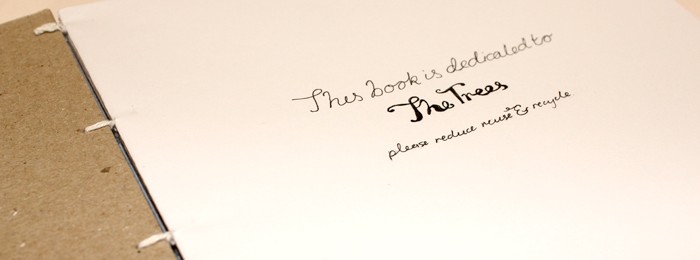 This book is dedicated to
The Trees
please reduce reuse & recycle